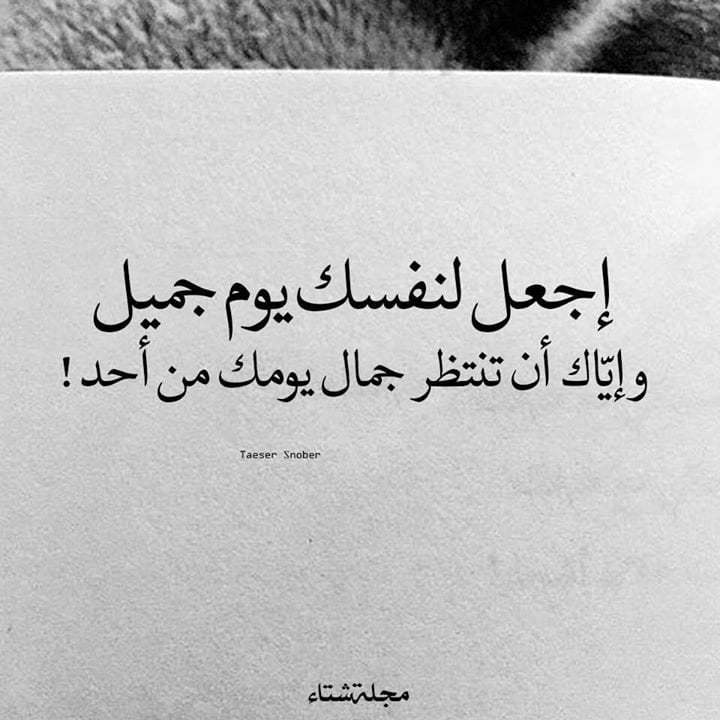 إجعل لنفسك يوم جميل
وإيّاك أن تنتظر جمال يومك من أحد !
Taeser Snober
مجلة شتاء